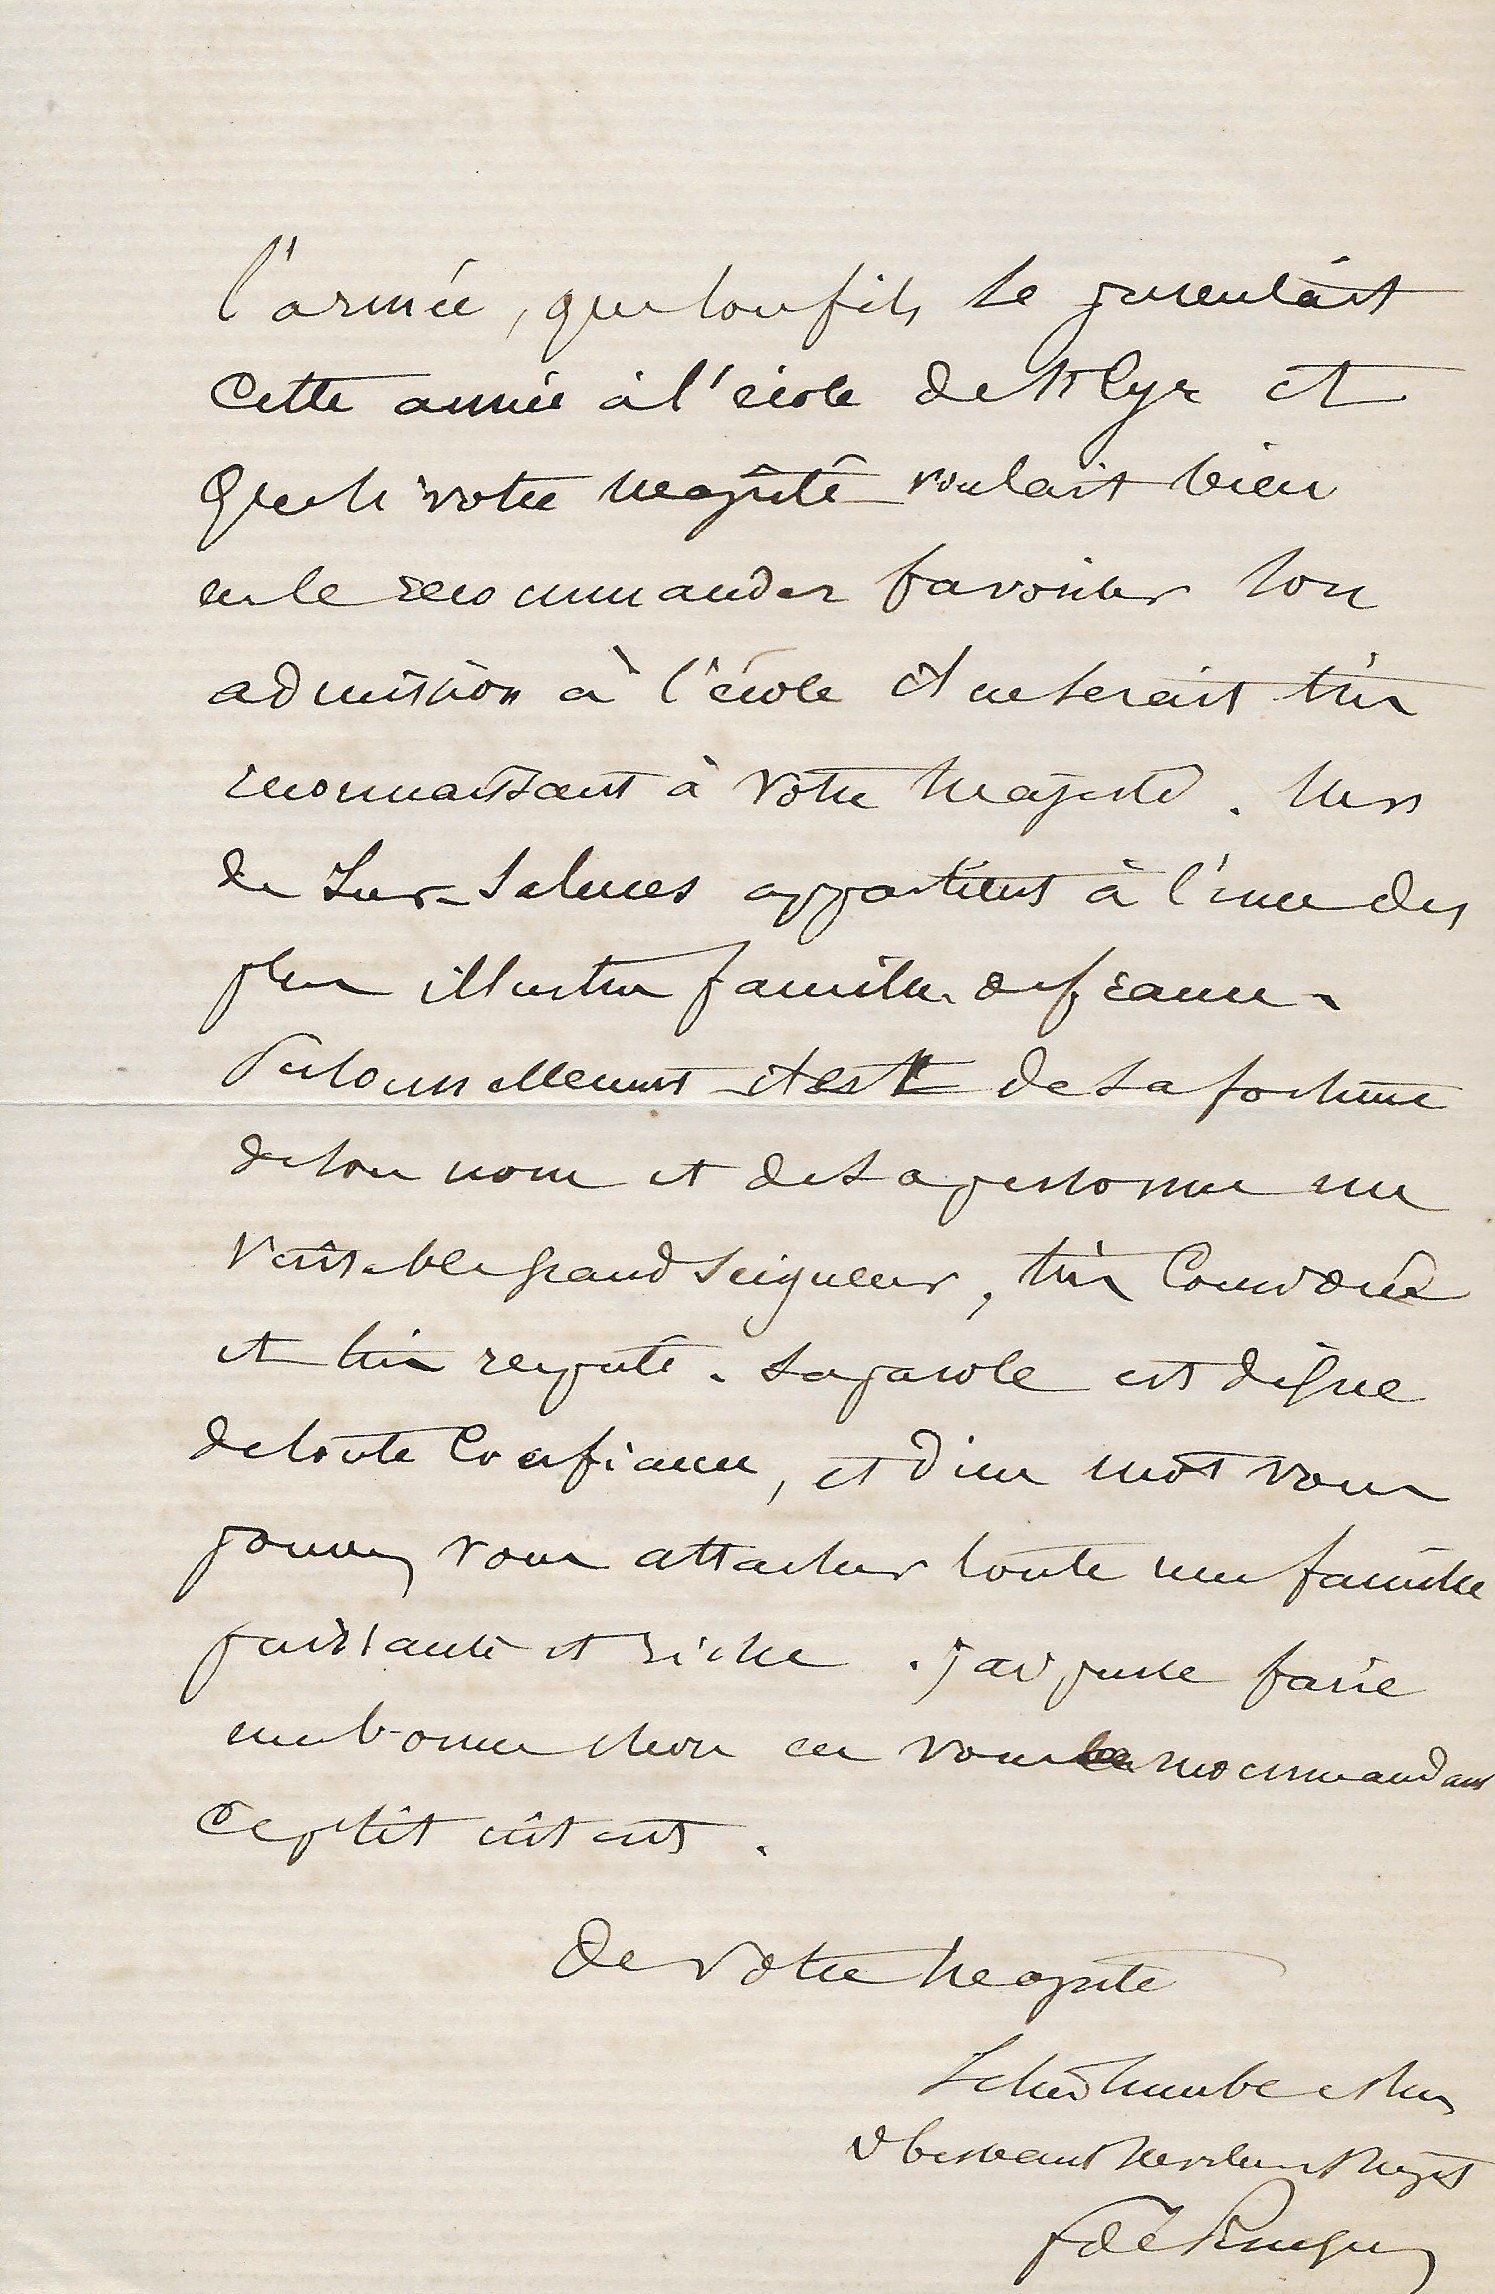 l'armée, que son fils se presentait
cette année à l'école de St Cyr et
que si votre Majesté voulait bien
en le recommander favoriser son
admission à l'école il en serait très
reconnaissant à Votre Majesté. Mr
de Lur-Saluces appartient à l'une des
plus illustres familles de france.
Personnellement il est de sa fortune
de son nom et de sa personne un
véritable grand Seigneur, très Considéré
et très respecté. Sa parole est digne
de toute Confiance, et d'un mot vous
pouvez vous attacher toute une famille
puissante et riche. J'ai pensé faire
une bonne chose en vous recommandant
ce petit
De Votre Majesté
Le très humble et très
obeissant serviteur et sujet
F de